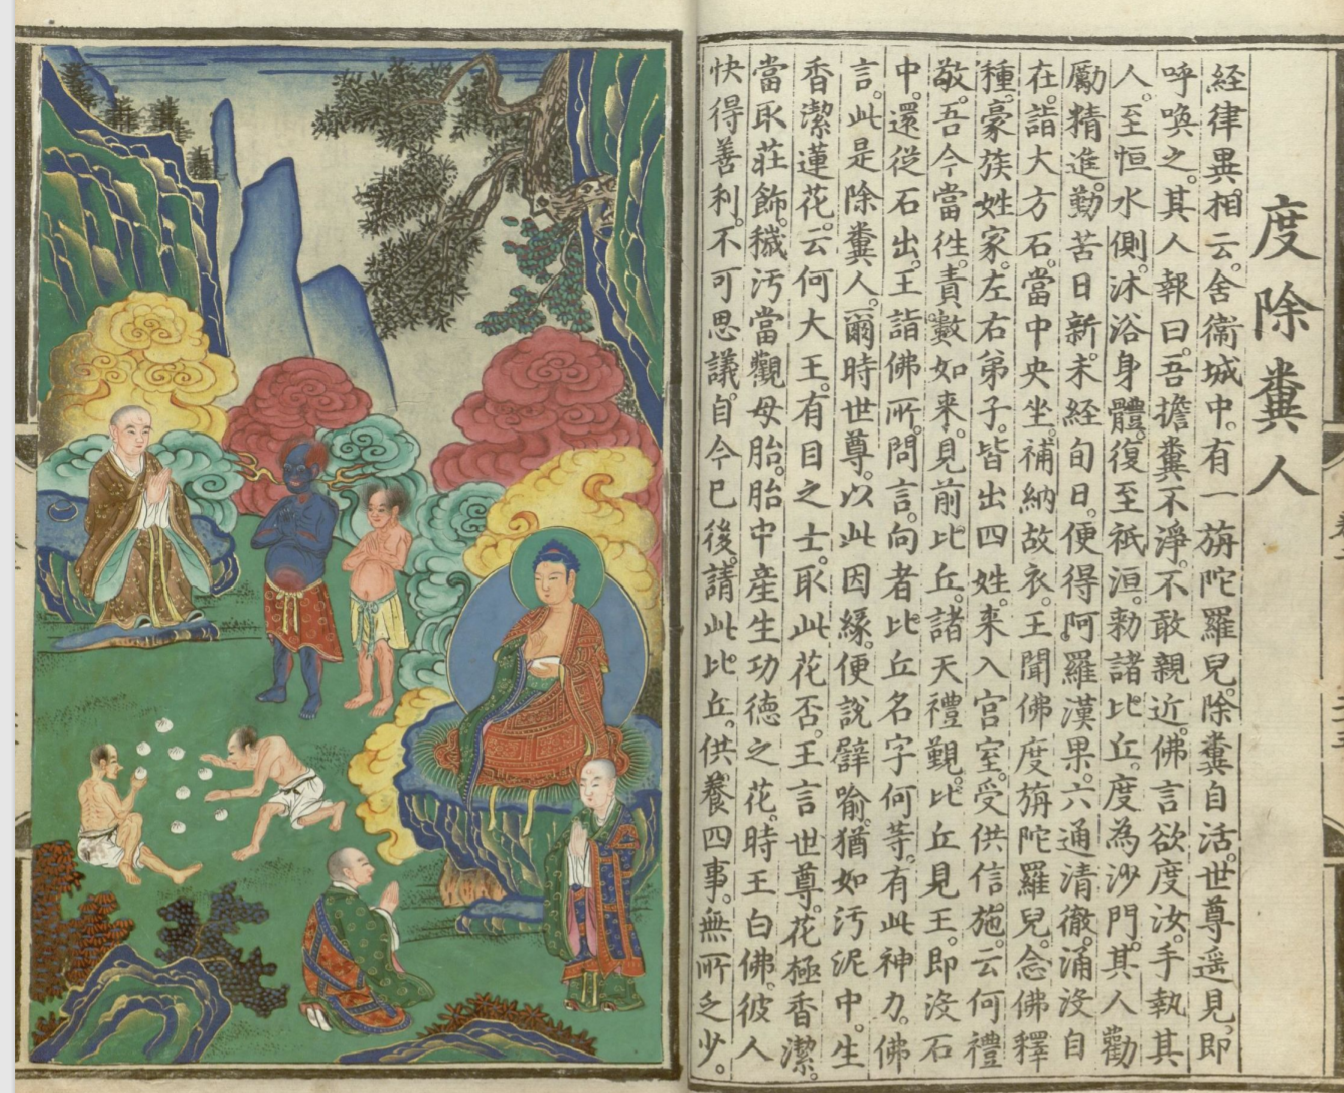 度除糞人
経律異相云。舍衞城中。有一旃陀羅兒。除糞自活。世尊遥見。即
呼喚之。其人報曰。吾擔糞不淨。不敢親近。佛言欲度汝。手執其
人。至恒水側。沐浴身體。復至祇洹。勑諸比丘。度為沙門。其人勸
勵精進。勤苦日新。未経旬日。便得阿羅漢果。六通清徹。涌沒自
在。詣大方石。當中央坐。補納故衣。王聞佛度旃陀羅兒。念佛釋
種。豪族姓家。左右弟子。皆出四姓。来入宫室。受供信施。云何禮
敬。吾今當徃責數如来。見前比丘。諸天禮覲。比丘見王。即沒石
中。還從石出。王詣佛所。問言。向者比丘名字何等。有此神力。佛
言。此是除糞人。爾時世尊。以此因緣。便說譬喻。猶如污泥中。生
香潔蓮花。云何大王。有目之士。取此花否。王言世尊。花極香潔。
當取莊飾。穢污當觀母胎。胎中産生功德之花。時王白佛。彼人
快得善利。不可思議。自今已後。請此比丘。供養四事。無所乏少。